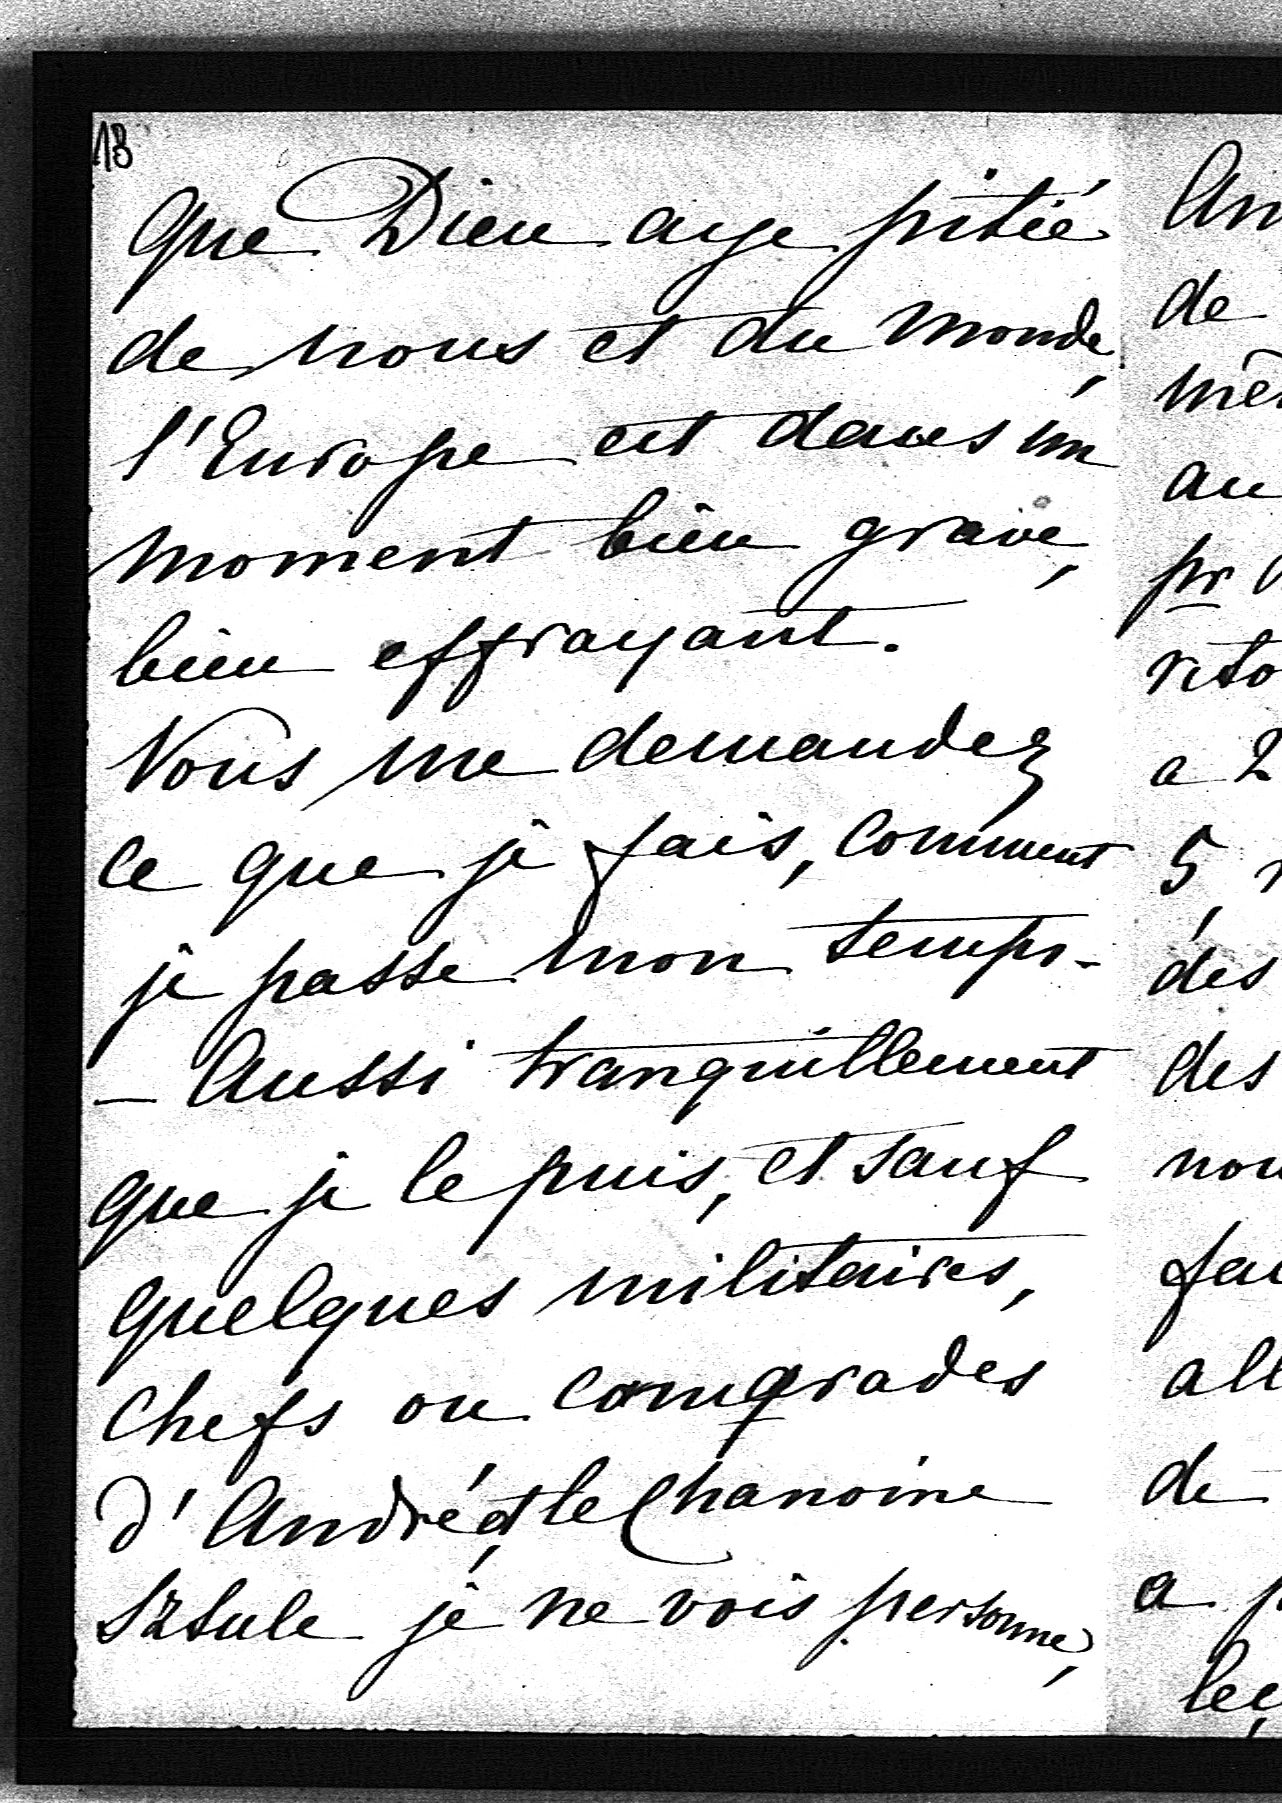 18
Que Dieu aye pitié
de nous et du monde,
l'Europe est dans un
moment bien grave,
bien effrayant.
Vous me demandez
ce que je fais, comment
je passe mon temps -
- Aussi tranquillement
que je le puis, et sauf
quelques militaires,
chefs ou camarades
d'André, et le Chanoine
je ne vois personne,
de
au
pr
a 2
5
dès
des
de
a